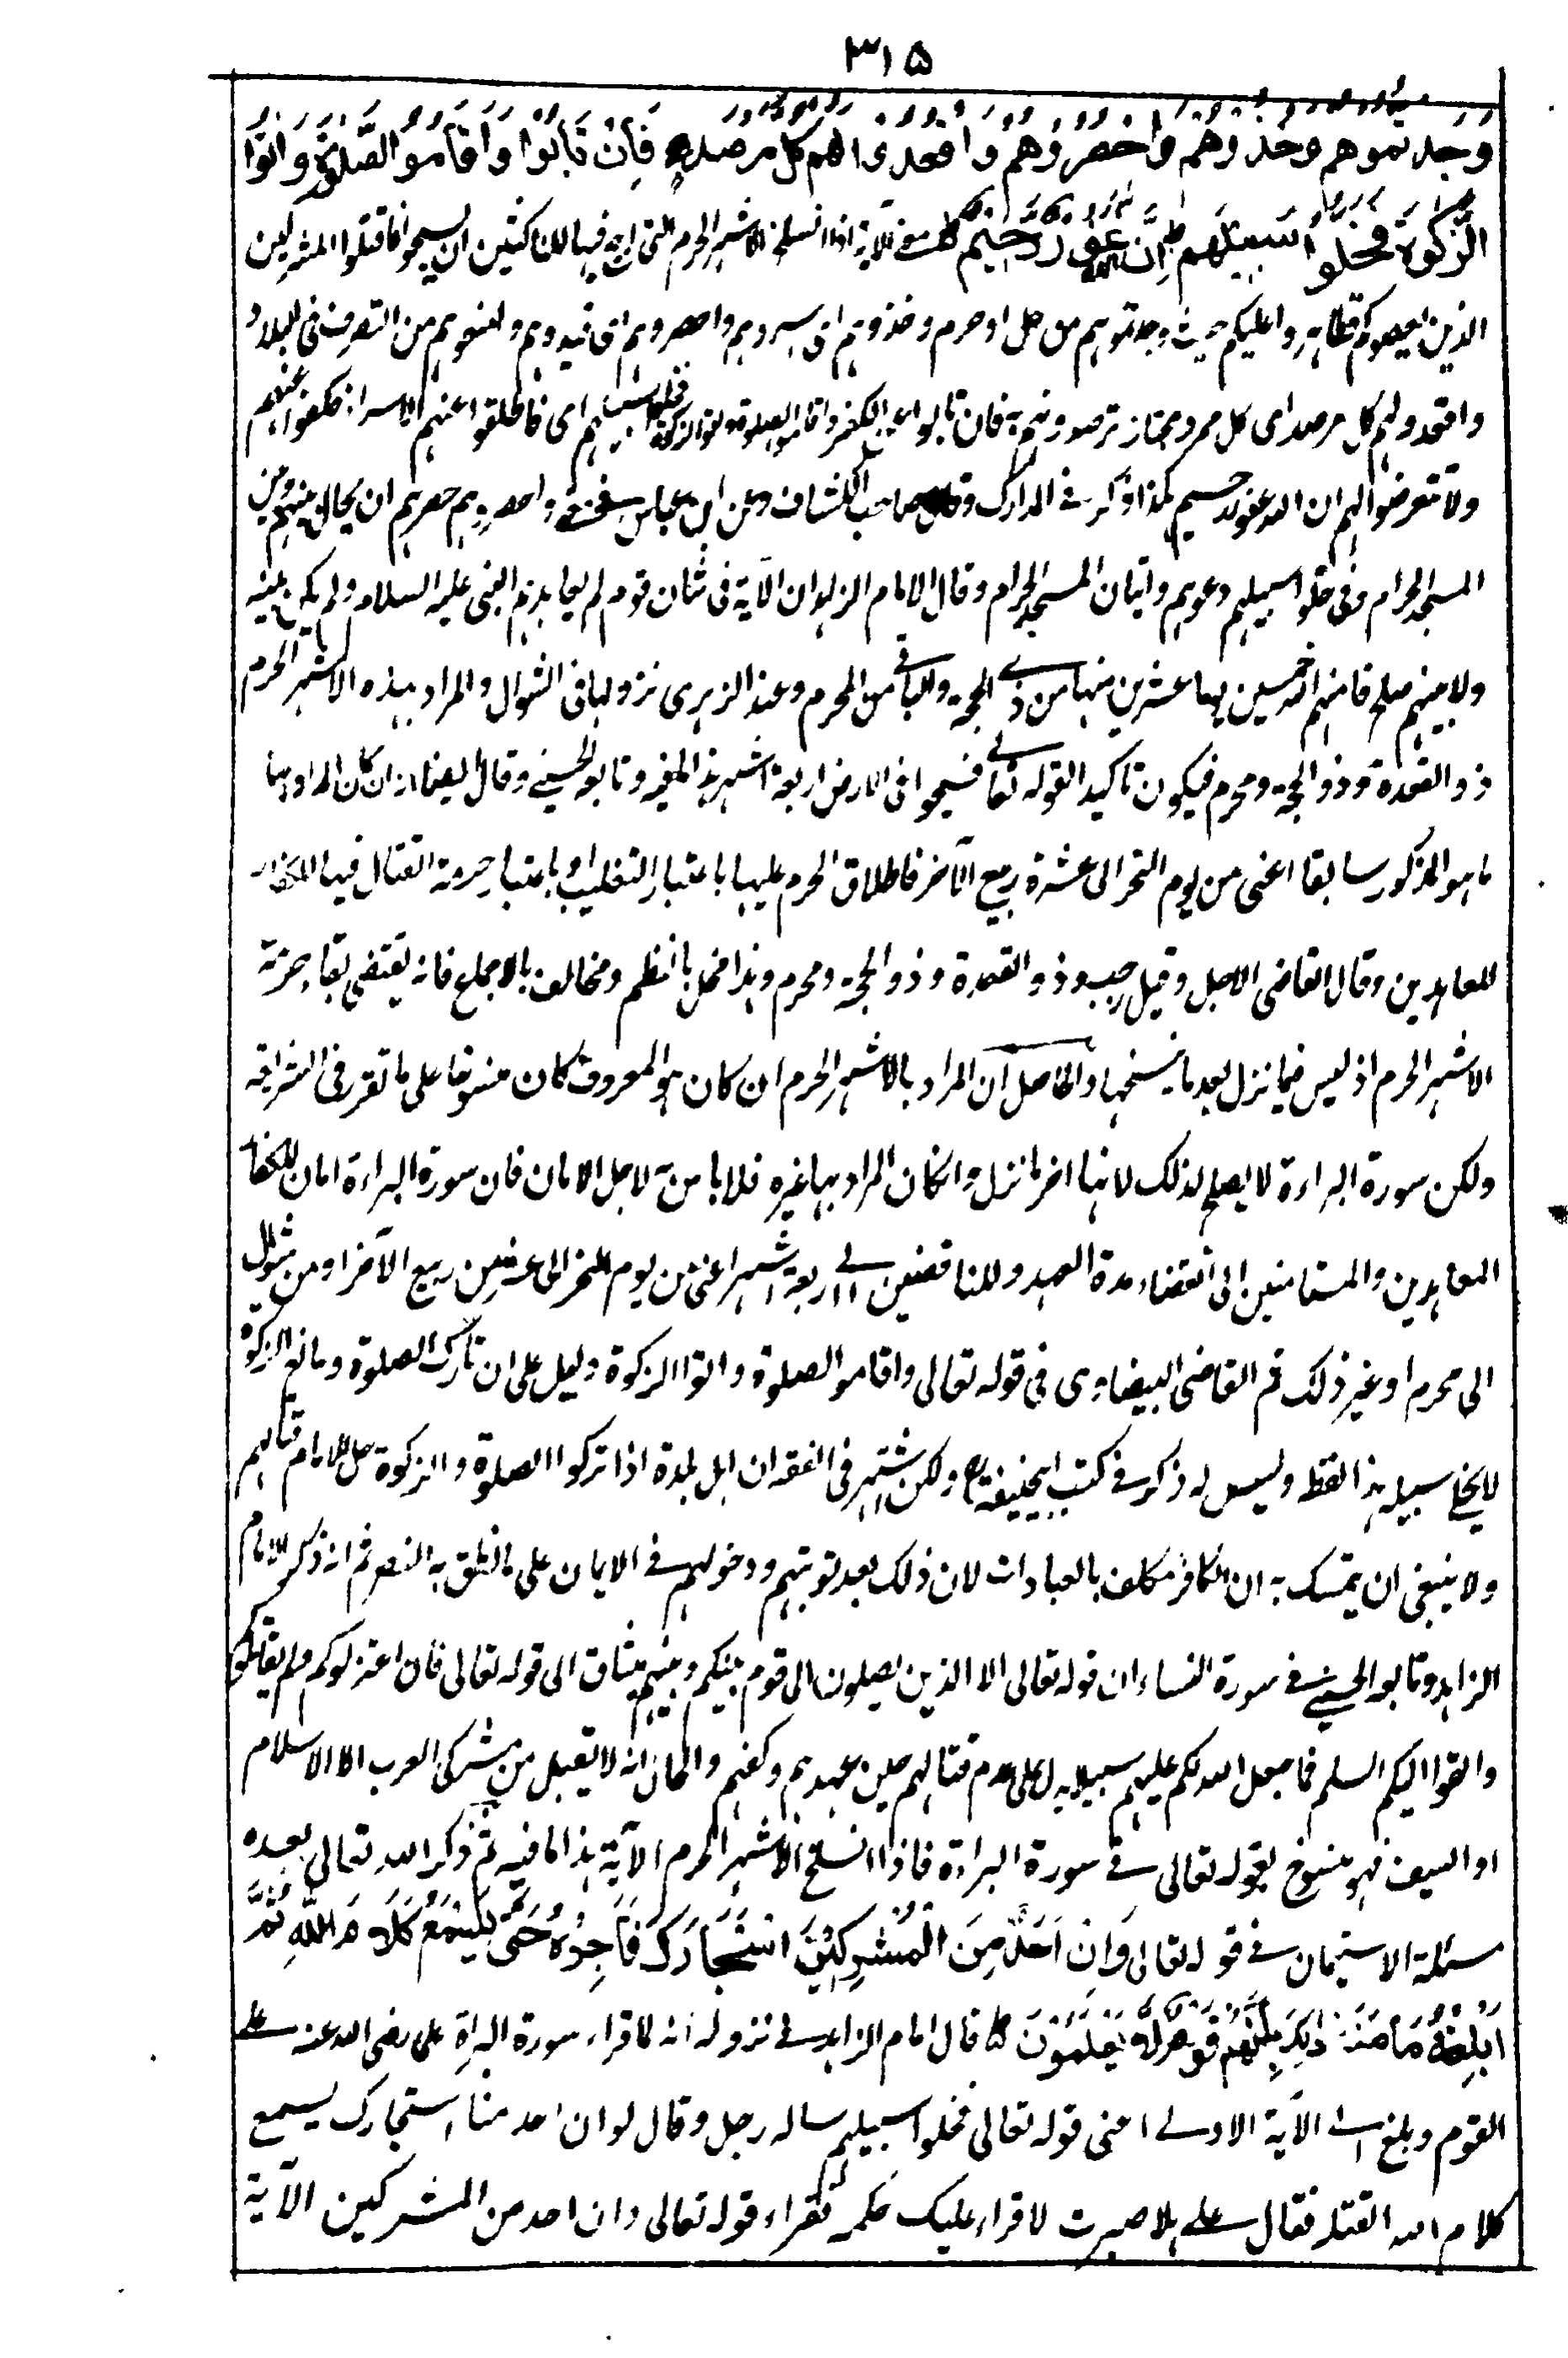 ٣١٥
وَجَدتموهم وَخُذُوهُمْ وَاحْصُرُوهُمْ وَاقْعُدُوا لَهُمْ كُلَّ مَرْصَدٍ فَاِنْ تَابُوْا وَاَقَامُوا الصَّلٰوةَ وَاٰتَوُا
الزَّكٰوةَ فَخَلُّوْا سَبِيْلَهُمْ ط اِنَّ اللّٰهَ غَفُوْرٌ رَّحِيْمٌ معنى الآية اذا انسلخ الاشهر الحرم التى ابيح فيها للناكثين ان يسيحوا فاقتلوا المشركين
الذين نقصوكم وظاهروا عليكم حيث وجدتموهم من حل او حرم وخذوهم اى اسروهم واحصروهم اى قيدوهم وامنعوهم من التصرف فى البلاد
واقعدوا لهم كل مرصد اى كل ممر ومجتاز ترصدونهم به فان تابوا عن الكفر واقاموا الصلوة واتوا الزكوة فخلوا سبيلهم اى فاطلقوا عنهم الاسر او فكفوا عنهم
ولا تتعرضوا لهم ان الله غفور رحيم هكذا ذكر فى المدارك وقال صاحب الكشاف وعن ابن عباس رض واحصروهم حصرهم ان يحال بينهم وبين
المسجد الحرام وفى خلوا سبيلهم دعوهم واتيان المسجد الحرام وقال الامام الزاهد ان الآية فى شان قوم لم يعاهدهم النبى عليه السلام ولم يكن بينه
ولا بينهم صلح فامنهم الله خمسين يوما عشرين منها من ذى الحجة والباقى من المحرم وعند الزهرى نزولها فى الشوال والمراد بهذه الاشهر الحرم
ذو القعدة وذو الحجة ومحرم فيكون تاكيدا لقوله تعالى فسيحوا فى الارض اربعة اشهر هذا لفظه وتابعه الحسينى وقال ايضا انه ان كان المراد بها
ما هو المذكور سابقا اعنى من يوم النحر الى عشرة ربيع الآخر فاطلاق الحرم عليها باعتبار التغليب او باعتبار حرمة القتال فيها للكفار
للمعاهدين وقال القاضى الاجل وقيل رجب وذو القعدة وذو الحجة ومحرم وهذا مخل بالنظم ومخالف بالاجماع فانه يقتضى بقاء حرمة
الاشهر الحرم اذ ليس فيما نزل بعد ما ينسخها والحاصل ان المراد بالاشهر الحرم ان كان هو المعروف كان منسوخا على ما تقرر فى الشرايعة
ولكن سورة البراءة لا يصلح لذلك لانها اخر ما نزل وانكان المراد بها غيره فلا باس به لاجل الامان فان سورة البراءة امان للكفار
المعاهدين والمستامنين الى انقضاء مدة العهد وللناقضين الى اربعة اشهر اعنى من يوم النحر الى عشرين ربيع الآخر او من شوال
الى محرم او غير ذلك ثم القاضى البيضاوى فى قوله تعالى واقاموا الصلوة واتوا الزكوة دليل على ان تارك الصلوة ومانع الزكوة
لا يخلى سبيله هذا لفظه وليس له ذكر فى كتب ابيحنيفة رح ولكن اشتهر فى الفقه ان اهل بلدة اذا تركوا الصلوة والزكوة حل للامام قتالهم
ولا ينبغى ان يتمسك به ان الكافر مكلف بالعبادات لان ذلك بعد توبتهم ودخولهم فى الايمان على ما نطق به النص ثم انه ذكر الامام
الزاهد وتابعه الحسينى فى سورة النساء ان قوله تعالى الا الذين يصلون الى قوم بينكم وبينهم ميثاق الى قوله تعالى فان اعتزلوكم ولم يقاتلوكم
والقوا اليكم السلم فما جعل الله لكم عليهم سبيلا يدل على عدم قتالهم حين عهدهم وكفهم والحال انه لا يقبل من مشركى العرب الا الاسلام
او السيف فهو منسوخ بقوله تعالى فى سورة البراءة فاذا انسلخ الاشهر الحرم الآية هذا ما فيه ثم ذكر الله تعالى بعده
مسئلة الاستيمان فى قوله تعالى وَاِنْ اَحَدٌ مِّنَ الْمُشْرِكِيْنَ اسْتَجَارَكَ فَاَجِرْهُ حَتّٰى يَسْمَعَ كَلَامَ اللّٰهِ ثُمَّ
اَبْلِغْهُ مَاْمَنَهٗ ذٰلِكَ بِاَنَّهُمْ قَوْمٌ لَّا يَعْلَمُوْنَ قال امام الزاهد فى نزوله انه لما قراء سورة البراة على رضى الله عنه على
القوم وبلغ الى الآية الاولى اعنى قوله تعالى فخلوا سبيلهم ساله رجل وقال لو ان احد منا استجارك ليسمع
كلام الله اتقتله فقال على هلا صبرت لاقراء عليك حكمه فقراء قوله تعالى وان احد من المشركين الآية